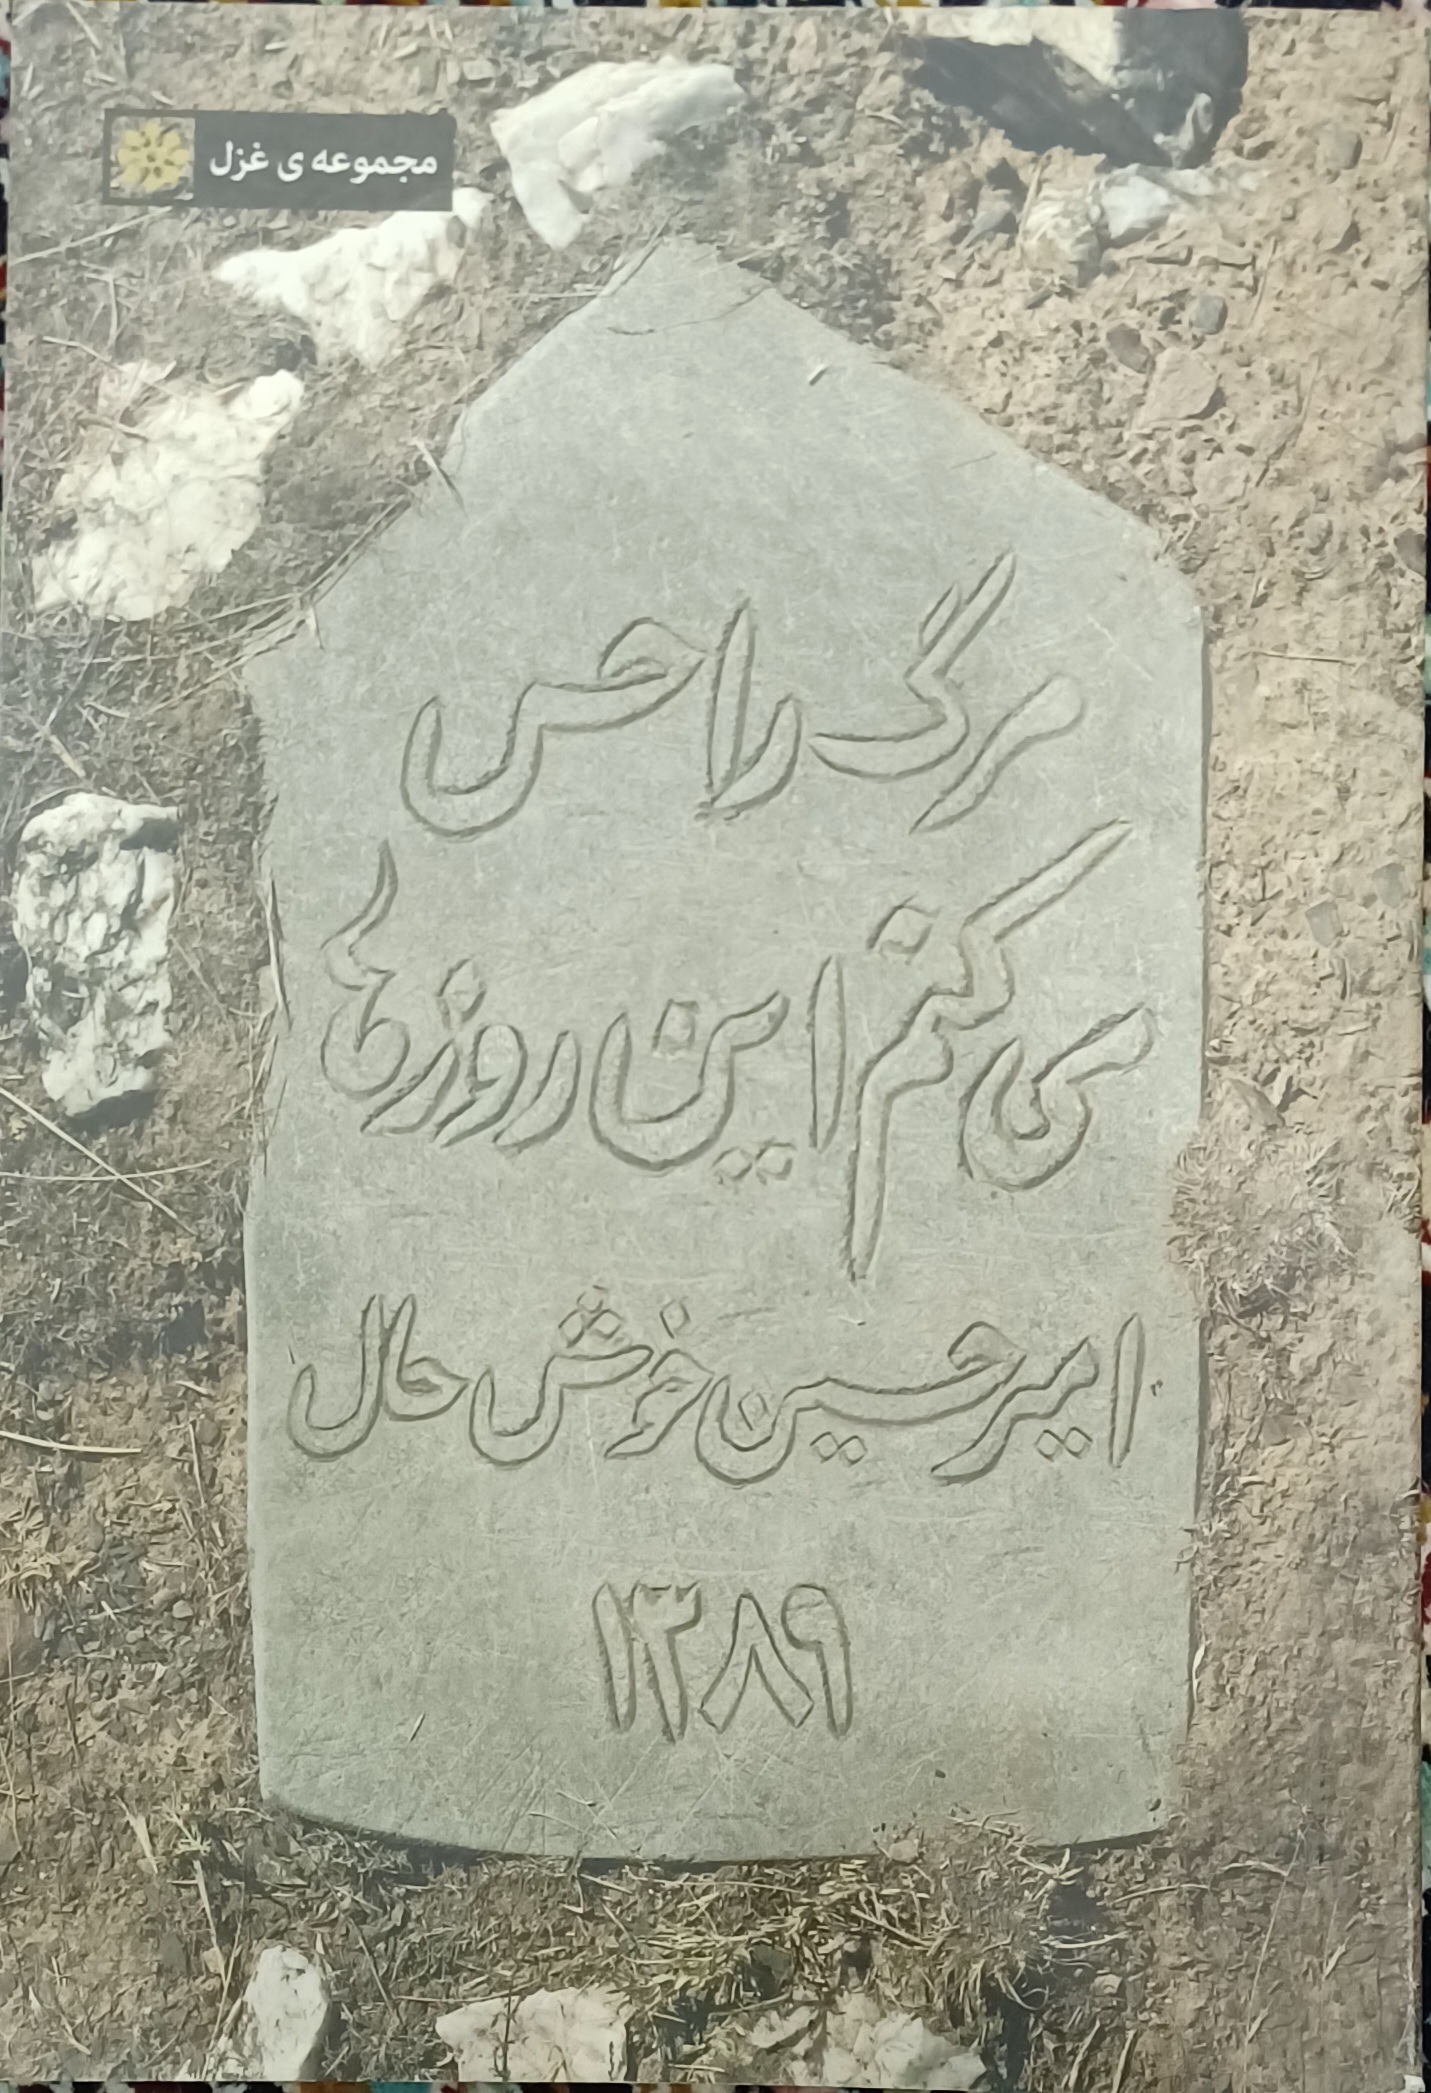 مجموعه ی غزل
مرگ را حس
می کنم این روزها
امیرحسین خوش حال
۱۳۸۹